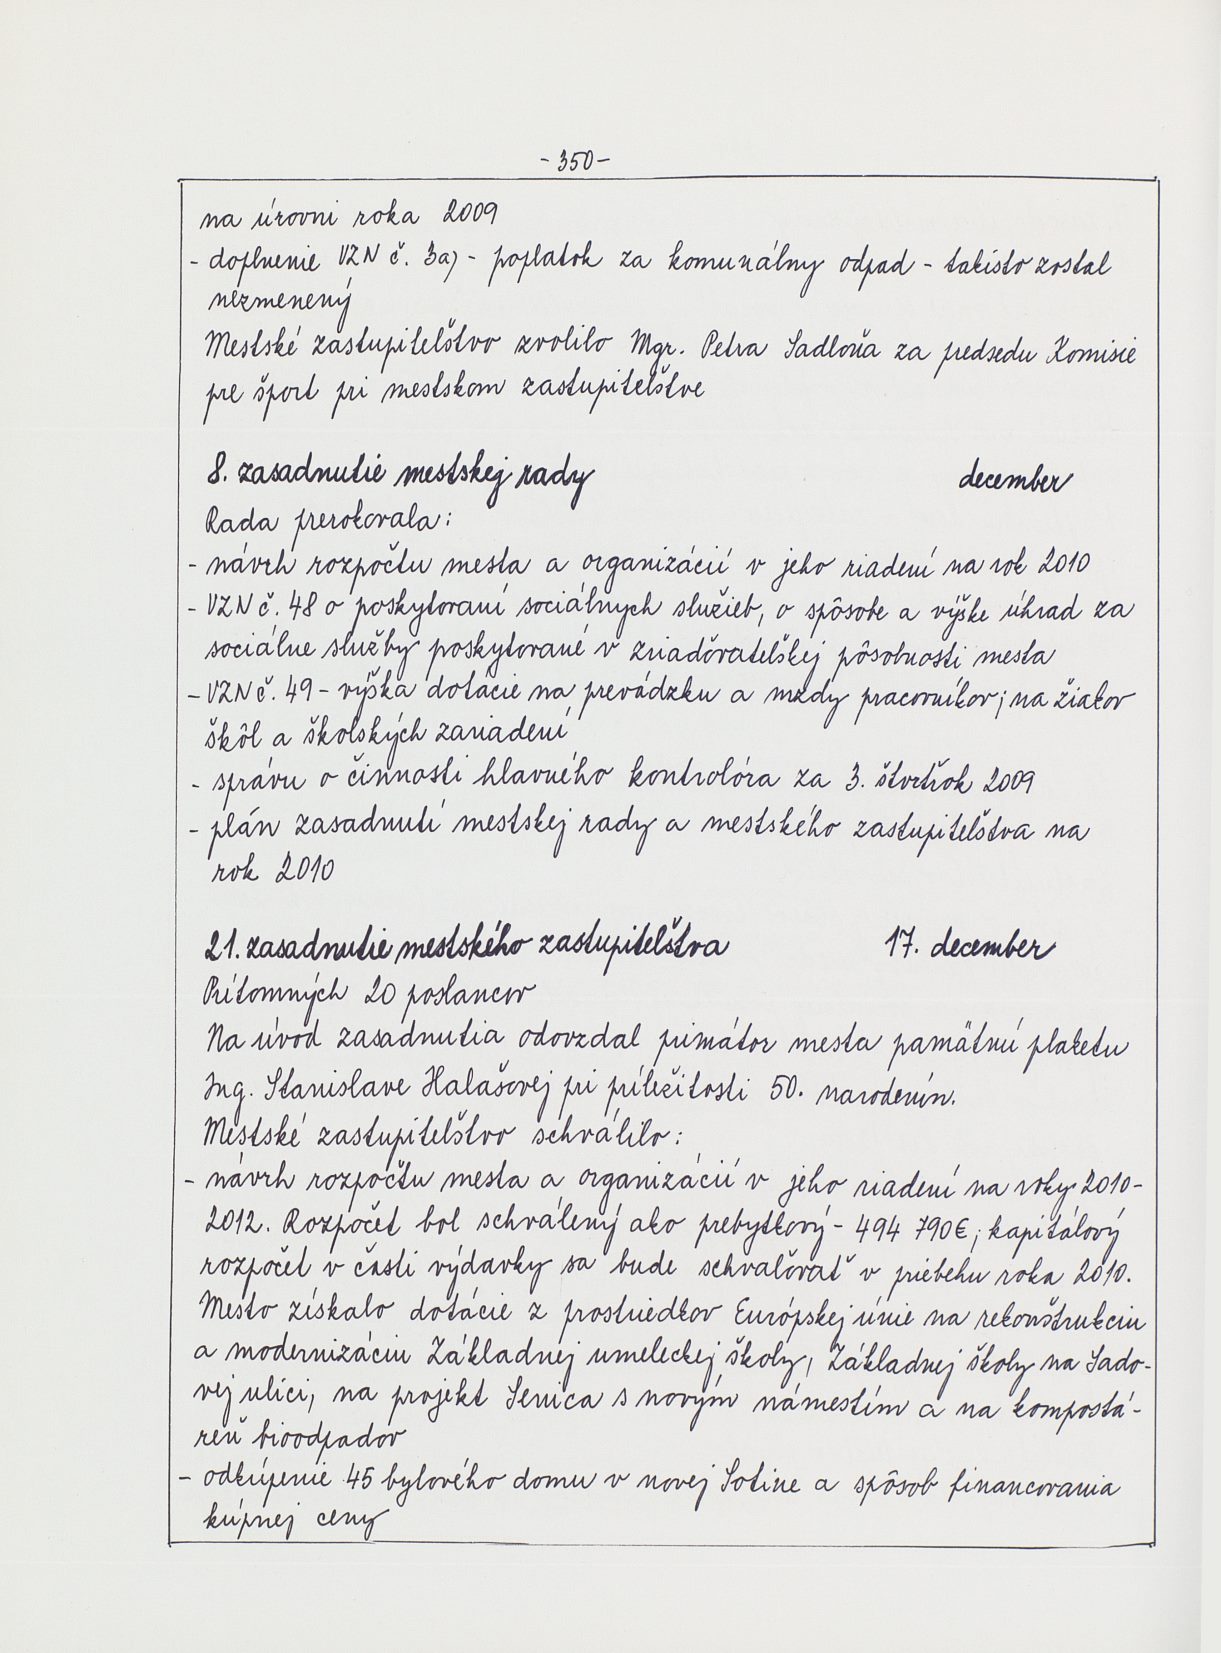 - 350 -
na úrovni roka 2009
- doplnenie VZN č. 3a) - poplatok za komunálny odpad - takisto zostal
nezmenený
Mestské zastupiteľstvo zvolilo Mgr. Petra Sadloňa za predsedu Komisie
pre šport pri mestskom zastupiteľstve
8. zasadnutie mestskej rady december
Rada prerokovala:
- návrh rozpočtu mesta a organizácií v jeho riadení na rok 2010
- VZN č. 48 o poskytovaní sociálnych služieb, o spôsobe a výške úhrad za
sociálne služby poskytované v zriaďovateľskej pôsobnosti mesta
- VZN č. 49 - výška dotácie na prevádzku a mzdy pracovníkov; na žiakov
škôl a školských zariadení
- správu o činnosti hlavného kontrolóra za 3. štvrťrok 2009
- plán zasadnutí mestskej rady a mestského zastupiteľstva na
rok 2010
21. zasadnutie mestského zastupiteľstva 17. december
Prítomných 20 poslancov
Na úvod zasadnutia odovzdal primátor mesta pamätnú plaketu
Ing. Stanislave Halašovej pri príležitosti 50. narodenín.
Mestské zastupiteľstvo schválilo:
- návrh rozpočtu mesta a organizácií v jeho riadení na roky 2010-
2012. Rozpočet bol schválený ako prebytkový - 494 790€; kapitálový
rozpočet v časti výdavky sa bude schvaľovať v priebehu roka 2010.
Mesto získalo dotácie z prostriedkov Európskej únie na rekonštrukciu
a modernizáciu Základnej umeleckej školy, Základnej školy na Sado-
vej ulici, na projekt Senica s novým námestím a na kompostá-
reň bioodpadov
- odkúpenie 45 bytového domu v novej Sotine a spôsob financovania
kúpnej ceny